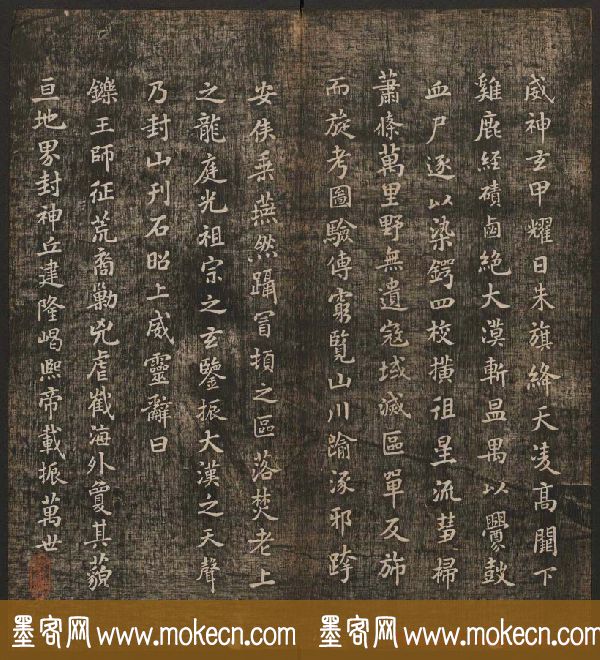 威神玄甲耀日朱旗絳天凌高闕下
雞鹿經磧鹵絕大漠斬昷禺以釁鼓
血尸逐以染鍔四校橫徂星流彗掃
蕭條萬里野無遺寇域滅區單反斾
而旋考圖驗傳窮覽山川踰涿邪跨
安侯乘燕然躡冒頓之區落焚老上
之龍庭光祖宗之玄鑒振大漢之天聲
乃封山刊石昭上威靈辭曰
鑠王師征荒裔勦兇虐截海外敻其藐
亘地界封神丘建隆嵑熙帝載振萬世
墨客网 www.mokecn.com 墨客网 www.mokecn.com